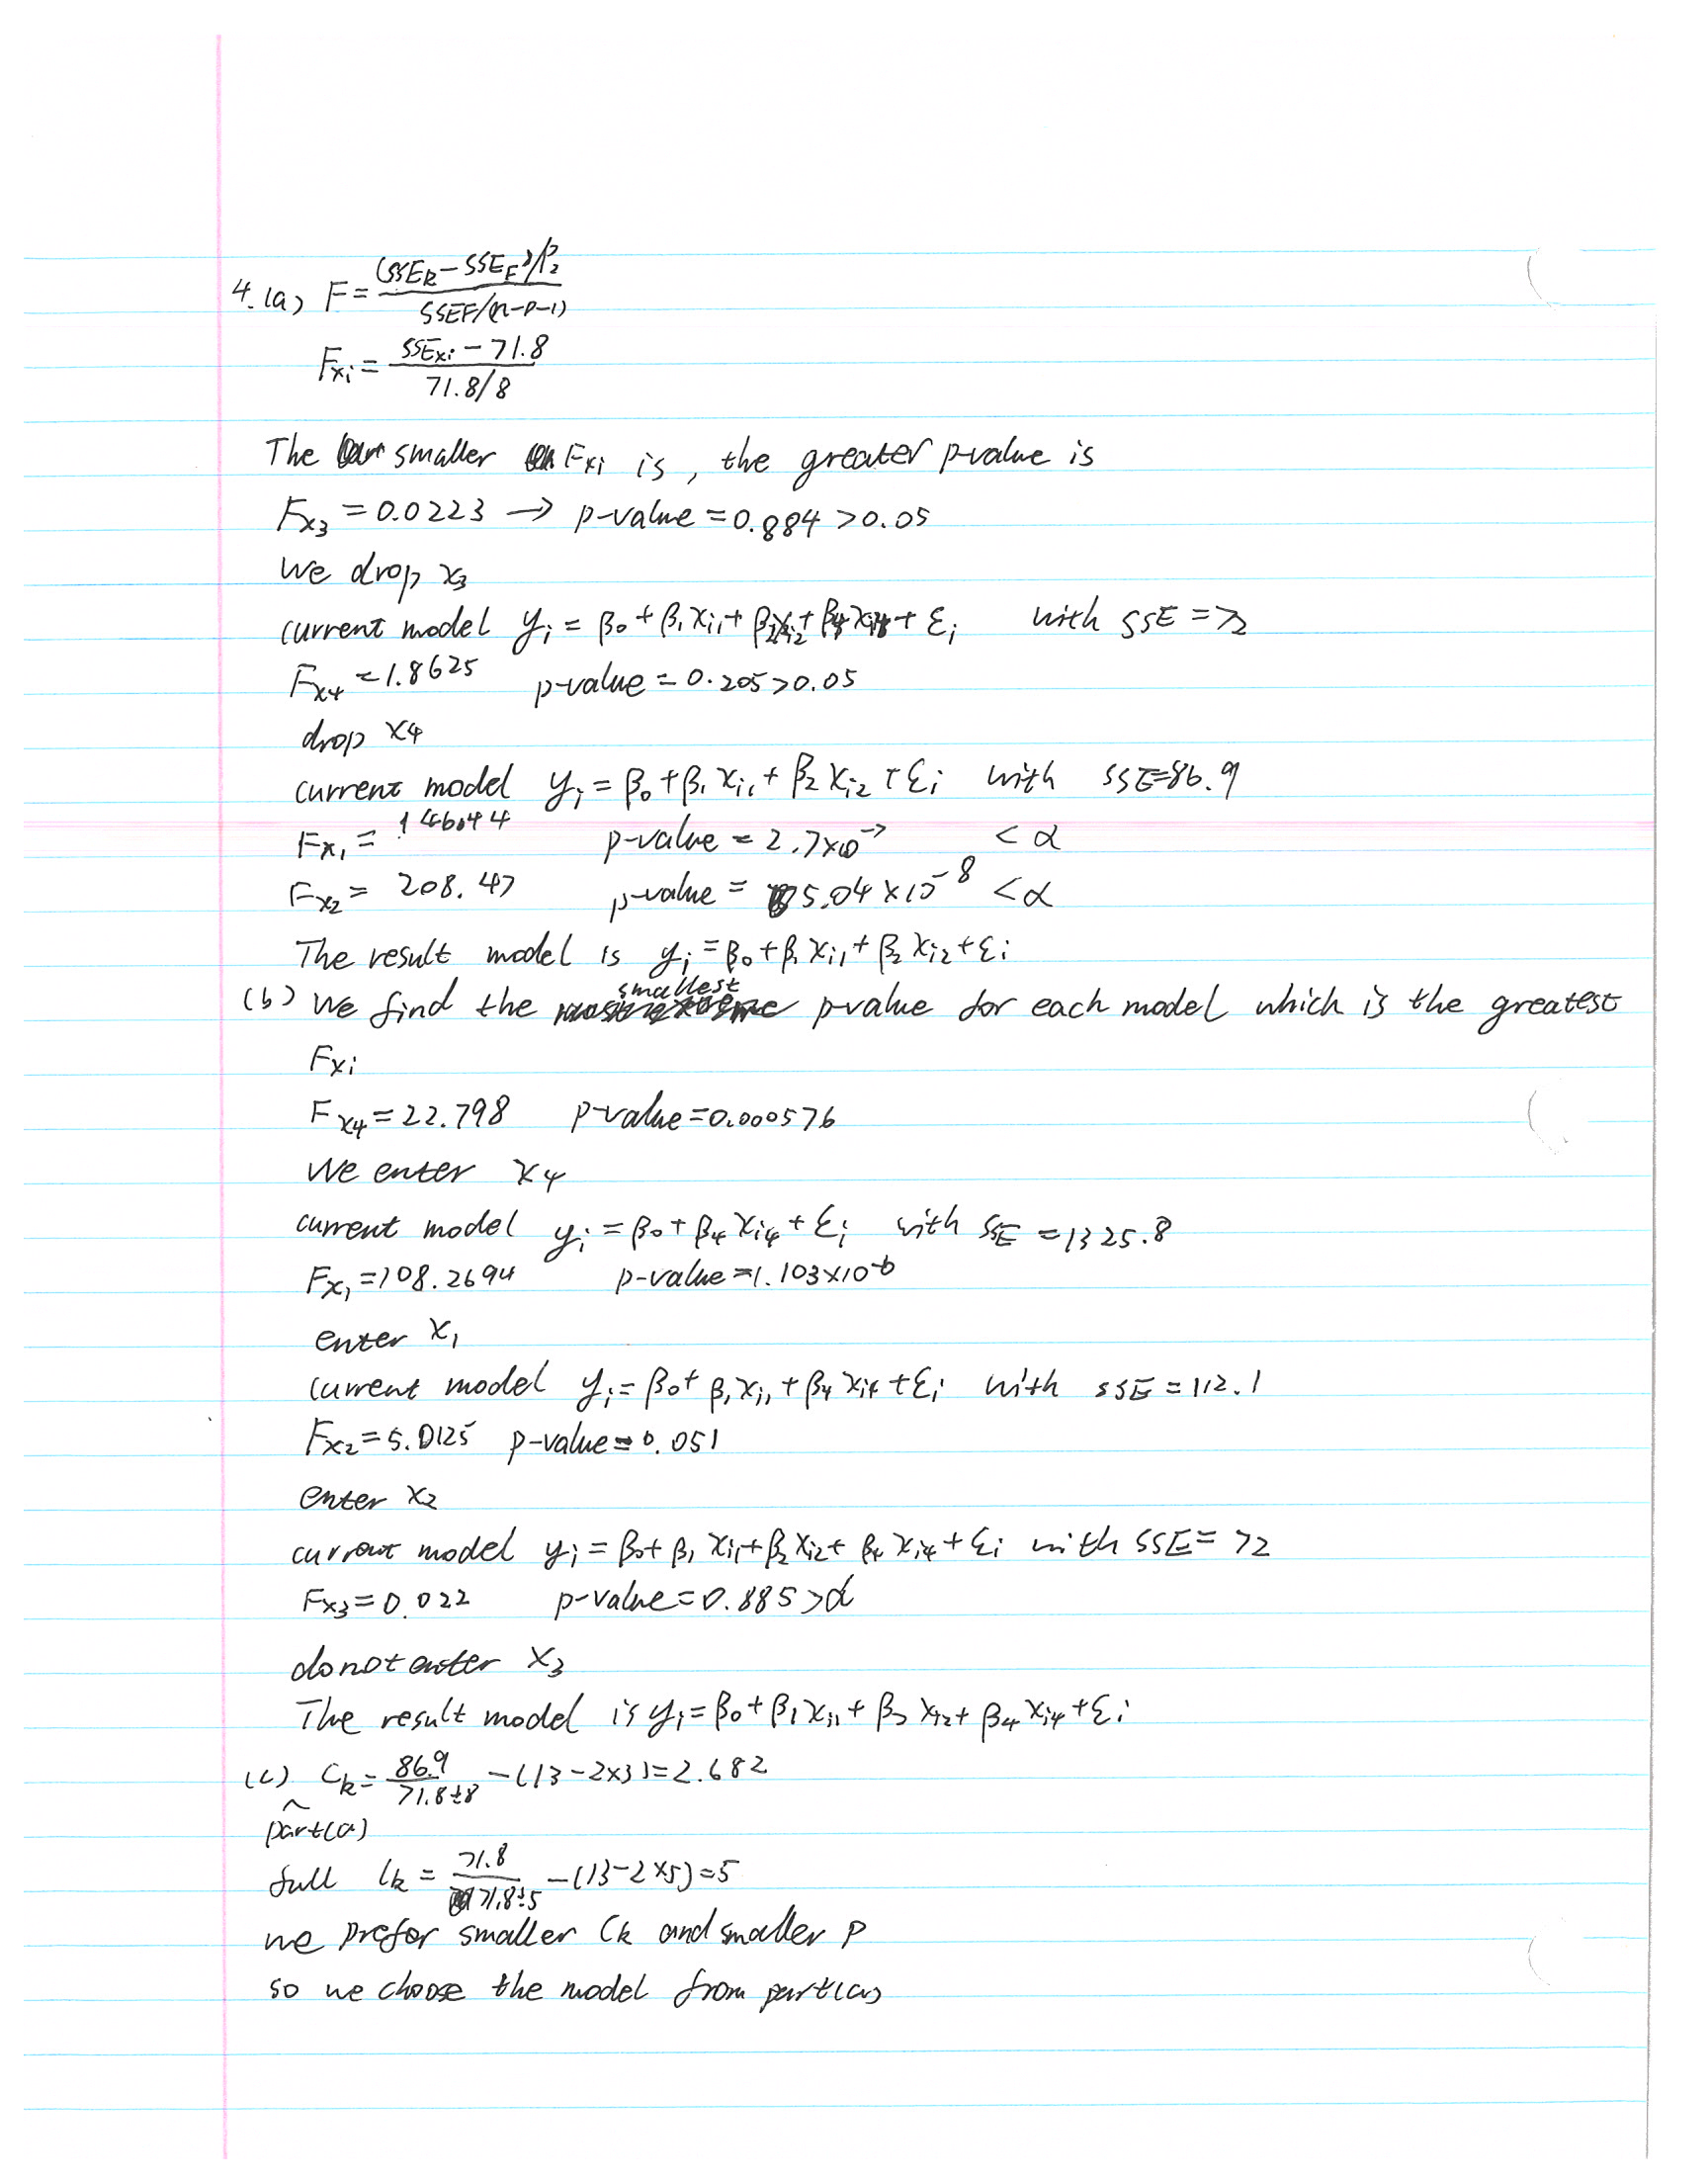 4.(a) F = (SSER - SSEF)/P2 / SSEF/(n-p-1)
Fxi = SSExi - 71.8 / 71.8/8
The smaller Fxi is, the greater p-value is
Fx3 = 0.0223 → p-value = 0.884 > 0.05
we drop x3
current model yi = β0 + β1xi1 + β2xi2 + β4xi4 + εi with SSE = 72
Fx4 = 1.8625 p-value = 0.205 > 0.05
drop x4
current model yi = β0 + β1xi1 + β2xi2 + εi with SSE = 86.9
Fx1 = 146.044 p-value = 2.7×10^-7 < α
Fx2 = 208.47 p-value = 5.04×10^-8 < α
The result model is yi = β0 + β1xi1 + β2xi2 + εi
(b) We find the smallest p-value for each model which is the greatest
Fxi
Fx4 = 22.798 p-value = 0.000576
We enter x4
current model yi = β0 + β4xi4 + εi with SSE = 1325.8
Fx1 = 108.2694 p-value = 1.103×10^-6
enter x1
current model yi = β0 + β1xi1 + β4xi4 + εi with SSE = 112.1
Fx2 = 5.0125 p-value = 0.051
enter x2
current model yi = β0 + β1xi1 + β2xi2 + β4xi4 + εi with SSE = 72
Fx3 = 0.022 p-value = 0.885 > α
do not enter x3
The result model is yi = β0 + β1xi1 + β2xi2 + β4xi4 + εi
(c) Ck = 86.9 / 71.8÷8 - (13-2×3) = 2.682
part(a)
full Ck = 71.8 / 71.8÷5 - (13-2×5) = 5
we prefer smaller Ck and smaller p
so we choose the model from part(a)